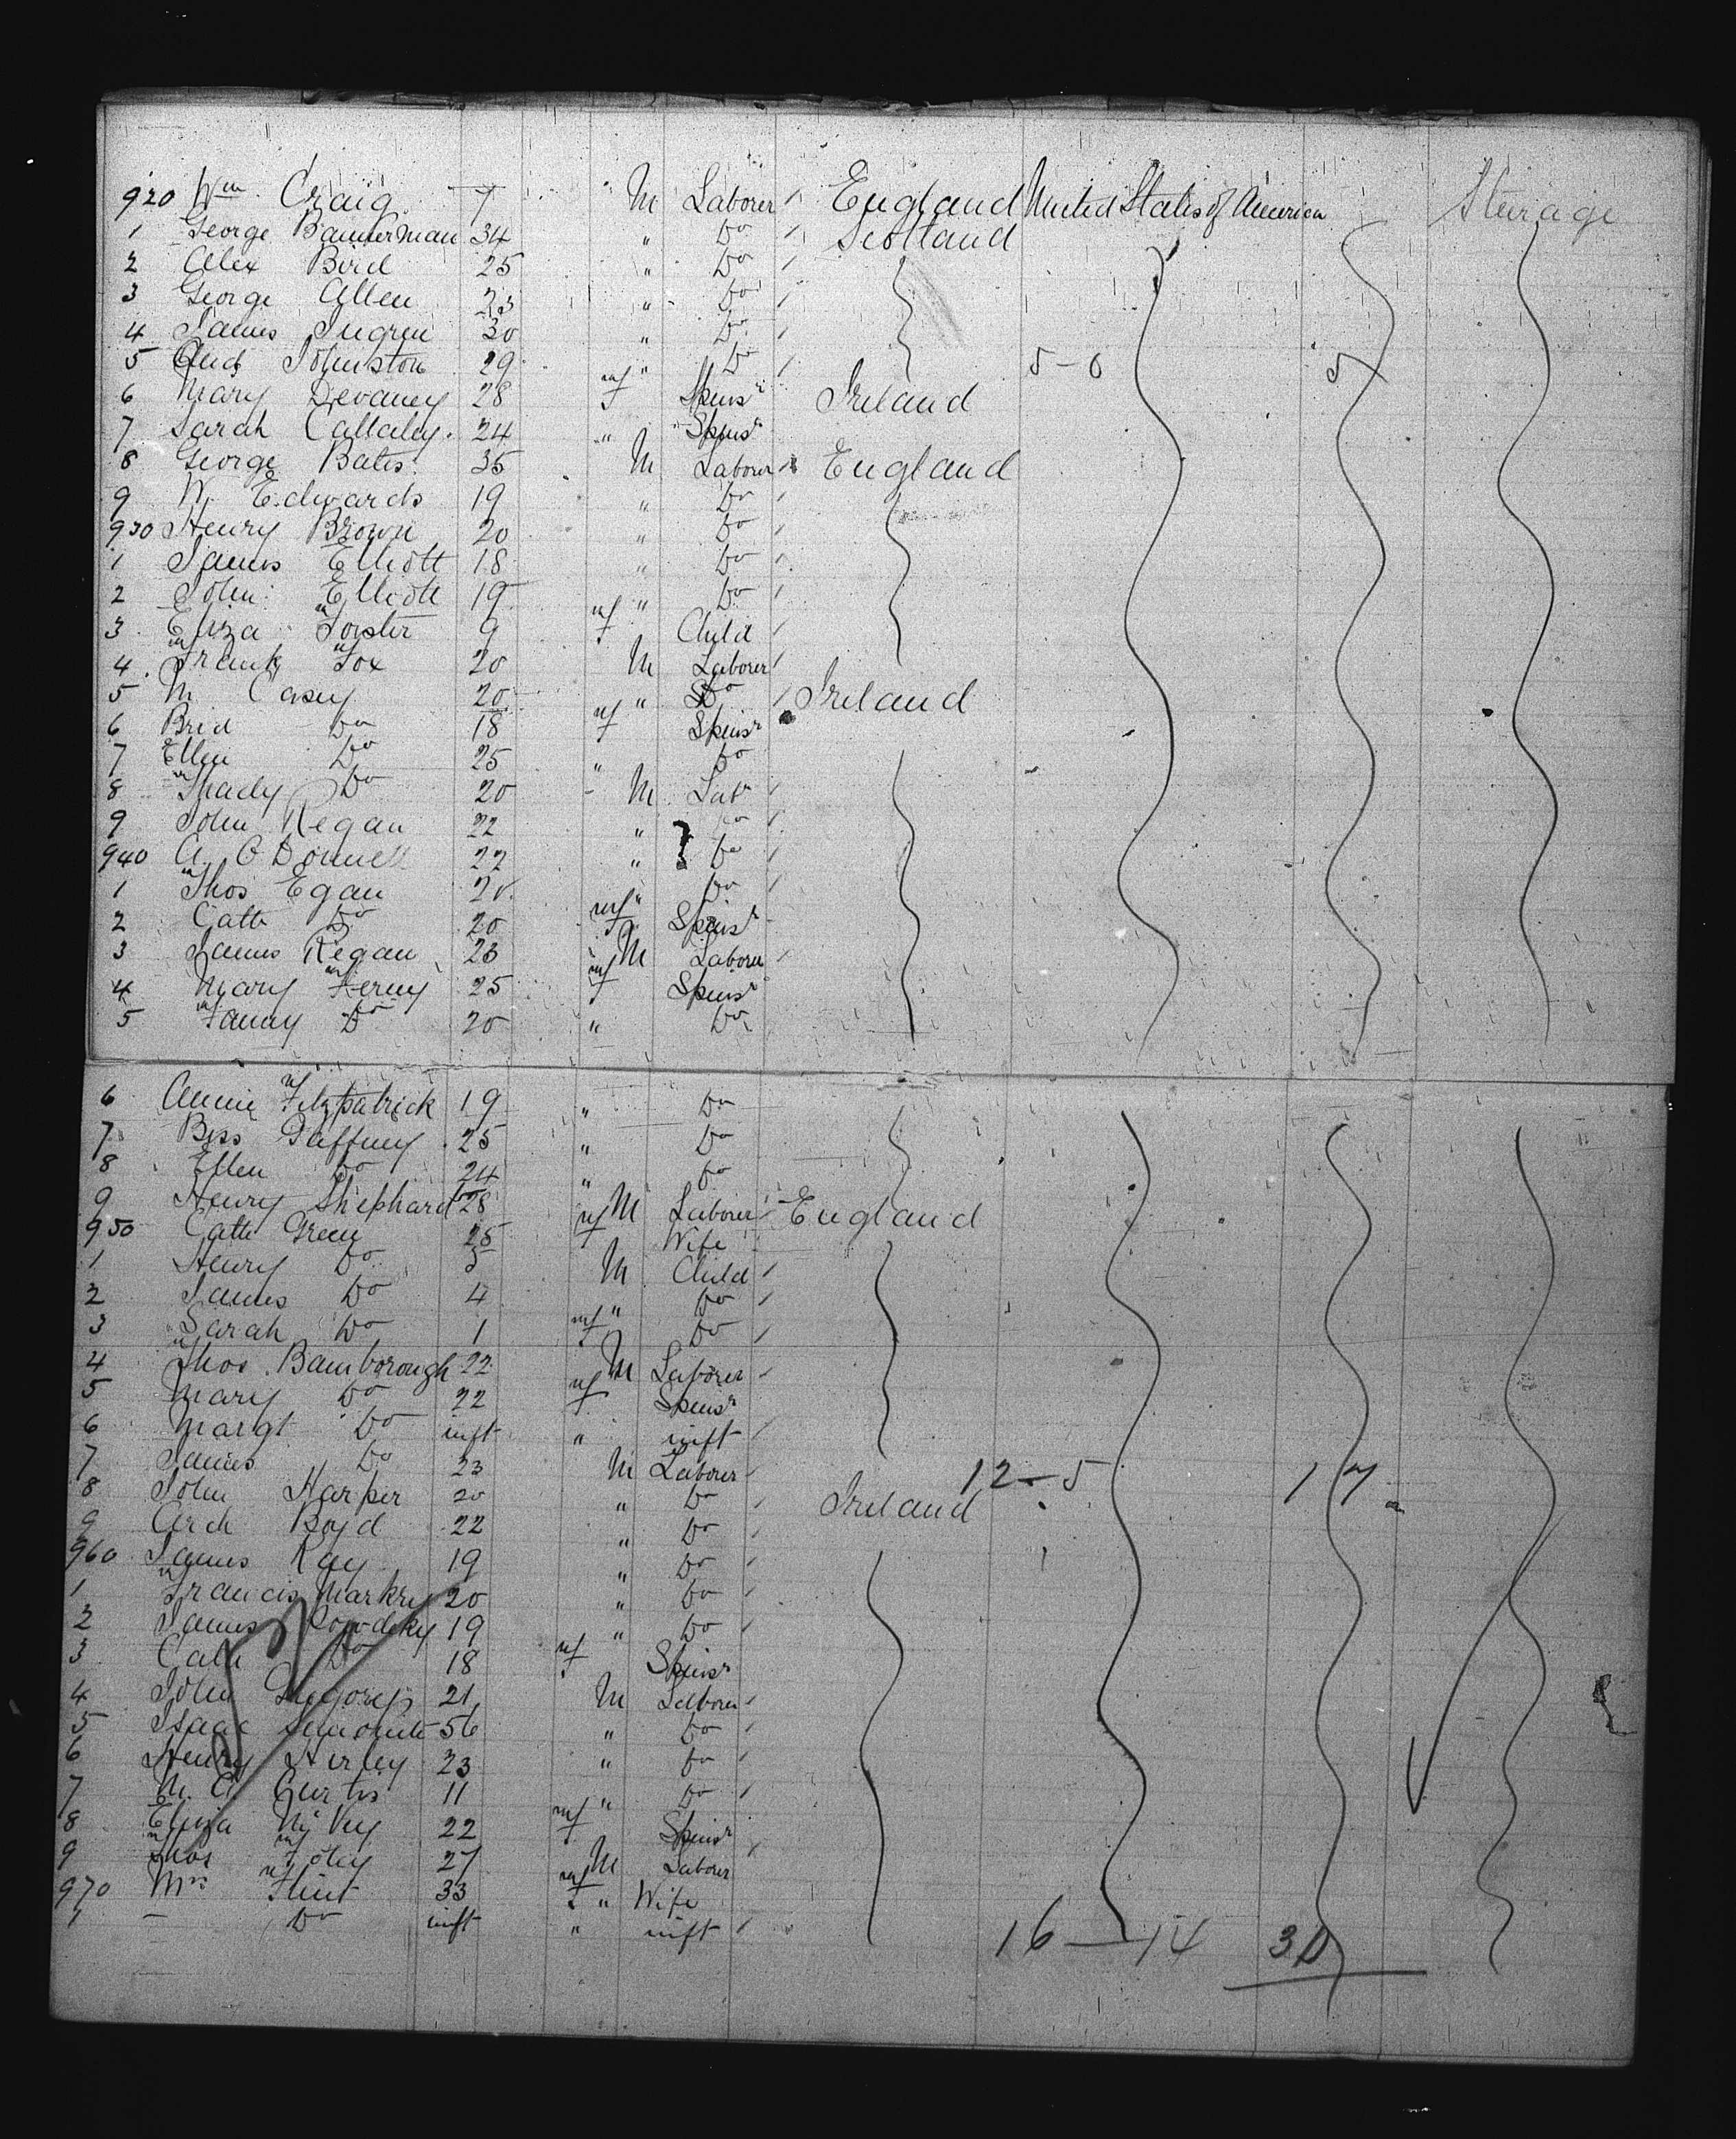 920 Wm Craig 7 M Laborer England United States of America Sterage
1 George Bannerman 34 " Do Scotland
2 Alex Bird 25 " Do
3 George Allen 23 " Do
4 James 30 " Do
5 And Johnston 29 " Do 5-0 5
6 Mary Devaney 28 f Spinsr Ireland
7 Sarah Callaley 24 " Spinsr
8 George Bates 35 M Laborer England
9 W. Edwards 19 " Do
930 Henry Brown 20 " Do
1 James Elliott 18 " Do
2 John Elliott 19 " Do
3 Eliza Forster 9 f Child
4 Frank Fox 20 M Laborer
5 M Casey 20 " Do Ireland
6 Brid Do 18 f Spinsr
7 Ellen Do 25 " Do
8 Thady Do 20 M Labr
9 John Regan 22 " Do
940 A. O Donnell 22 " Do
1 Thos Egan 20 " Do
2 Cath Do 20 f Spinsr
3 James Regan 23 M Laborer
4 Mary Ferny 25 f Spinsr
5 Fanny Do 20 " Do
6 Annie Fitzpatrick 19 " Do
7 Bess Gaffney 25 " Do
8 Ellen Do 24 " Do
9 Henry Shephard 28 M Laborer England
950 Cath Green 25 f Wife
1 Henry Do 5 M Child
2 James Do 4 " Do
3 Sarah Do 1 f Do
4 Thos. Bamborough 22 M Laborer
5 Mary Do 22 f Spinsr
6 Margt Do inft " inft
7 James Do 23 M Laborer 12-5 17
8 John Harper 20 " Do Ireland
9 Arch Boyd 22 " Do
960 James Kay 19 " Do
1 Francis Markey 20 " Do
2 James 19 " Do
3 Cath Do 18 f Spinsr
4 John Gregory 21 M Laborer
5 Isaac 56 " Do
6 Henry Hirley 23 " Do
7 M. A. Curtis 11 " Do
8 Eliza 22 f Spinsr
9 Thos Foley 27 M Laborer
970 Mrs Flint 33 f " Wife
1 - Do inft " inft
16-14 30